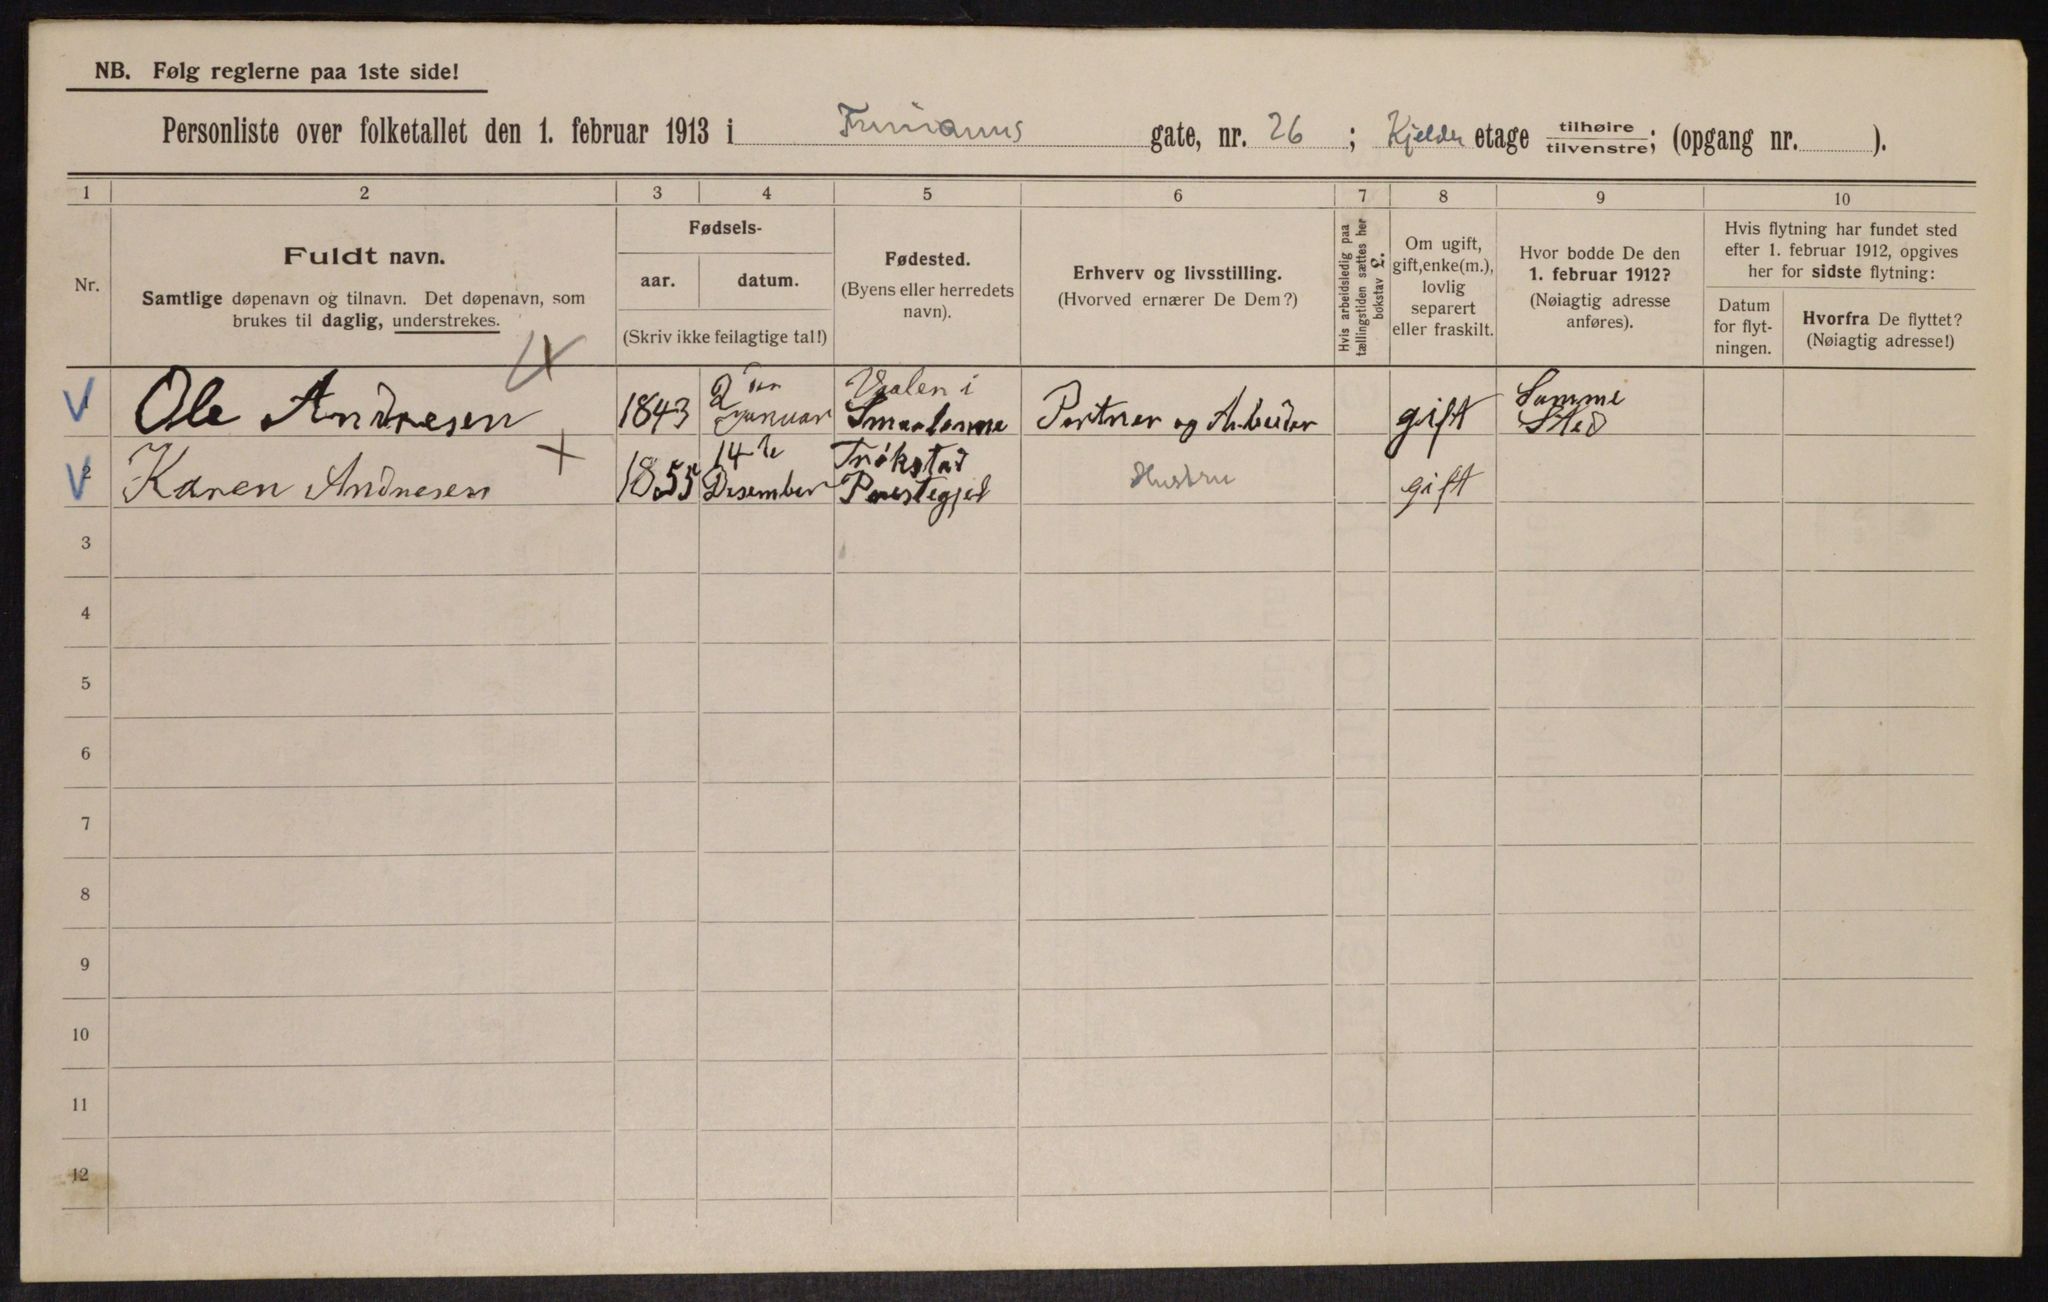 NB. Følg reglerne paa 1ste side!
Personliste over folketallet den 1. februar 1913 i gate, nr. 26 ; Kjelder etage tilhøire/tilvenstre; (opgang nr. ).
1 2 3 4 5 6 7 8 9 10
Nr.
Fuldt navn.
Samtlige døpenavn og tilnavn. Det døpenavn, som
brukes til daglig, understrekes.
Fødsels-
aar. datum.
(Skriv ikke feilagtige tal!)
Fødested.
(Byens eller herredets
navn).
Erhverv og livsstilling.
(Hvorved ernærer De Dem?)
Hvis arbeidsledig paa
tællingstiden sættes her
bokstav L.
Om ugift,
gift, enke(m.),
lovlig
separert
eller fraskilt.
Hvor bodde De den
1. februar 1912?
(Nøiagtig adresse
anføres).
Hvis flytning har fundet sted
efter 1. februar 1912, opgives
her for sidste flytning:
Datum
for flyt-
ningen.
Hvorfra De flyttet?
(Nøiagtig adresse!)
1 Ole Andresen 1843 2den Januar Vaalen i Smaalenene Portner og Arbeider gift Samme Sted
2 Karen Andresen 1855 14de Desember Trøkstad Prestegjel Hustru gift
3
4
5
6
7
8
9
10
11
12